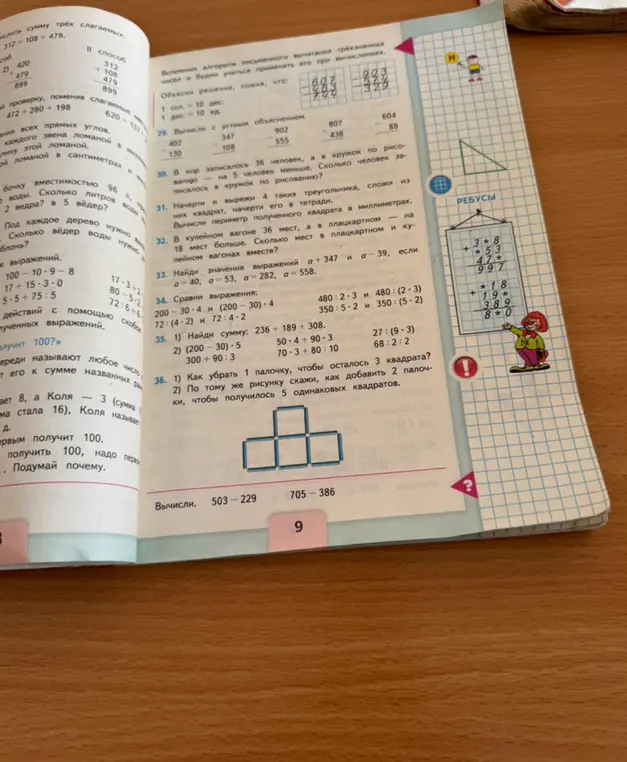 числить сумму трёх слагаемых.
312 + 108 + 479.
II способ
2) 420
479
899
312
+ 108
479
899
проверку, поменяв слагаемые
472 + 280 + 198
всех прямых углов.
каждого звена ломаной в
этой ломаной.
ломаной в сантиметрах и
бочку вместимостью 96 л,
воды. Сколько литров воды
2 ведра? в 5 вёдер?
Под каждое дерево нужно
Сколько вёдер воды нужно
выражений.
100 − 10 · 9 − 8
17 + 15 · 3 · 0
5 · 5 + 75 : 5
действий с помощью скобок
лученных выражений.
олучит 100?»
ереди называют любое число
его к сумме названных
8, а Коля — 3 (сумма
ма стала 16), Коля называет
д.
рвым получит 100.
получить 100, надо
. Подумай почему.
Вспомним алгоритм письменного вычитания трёхзначных
чисел и будем учиться применять его при вычислениях.
Объясни решение, помня, что:
1 сот. = 10 дес.
1 дес. = 10 ед.
29. Вычисли с устным объяснением.
402
130
347
108
902
555
807
438
604
88
30. В хор записалось 36 человек, а в кружок по рисо-
ванию — на 5 человек меньше. Сколько человек за-
писалось в кружок по рисованию?
31. Начерти и вырежи 4 таких треугольника, сложи из
них квадрат, начерти его в тетради.
Вычисли периметр полученного квадрата в миллиметрах.
32. В купейном вагоне 36 мест, а в плацкартном — на
18 мест больше. Сколько мест в плацкартном и ку-
пейном вагонах вместе?
33. Найди значения выражений a + 347 и a − 39, если
a = 40, a = 53, a = 282, a = 558.
34. Сравни выражения:
200 − 30 · 4 и (200 − 30) · 4
480 : 2 · 3 и 480 : (2 · 3)
72 : (4 · 2) и 72 : 4 · 2
350 : 5 · 2 и 350 : (5 · 2)
35. 1) Найди сумму: 236 + 189 + 308.
2) (200 − 30) · 5
50 · 4 + 90 · 3
27 : (9 · 3)
300 + 90 : 3
70 · 3 + 80 : 10
68 : 2 : 2
36. 1) Как убрать 1 палочку, чтобы осталось 3 квадрата?
2) По тому же рисунку скажи, как добавить 2 палоч-
ки, чтобы получилось 5 одинаковых квадратов.
Вычисли. 503 − 229 705 − 386
9
Н
РЕБУСЫ
3*8
+ *53
47*
997
*18
+ 19*
389
8*0
!
?